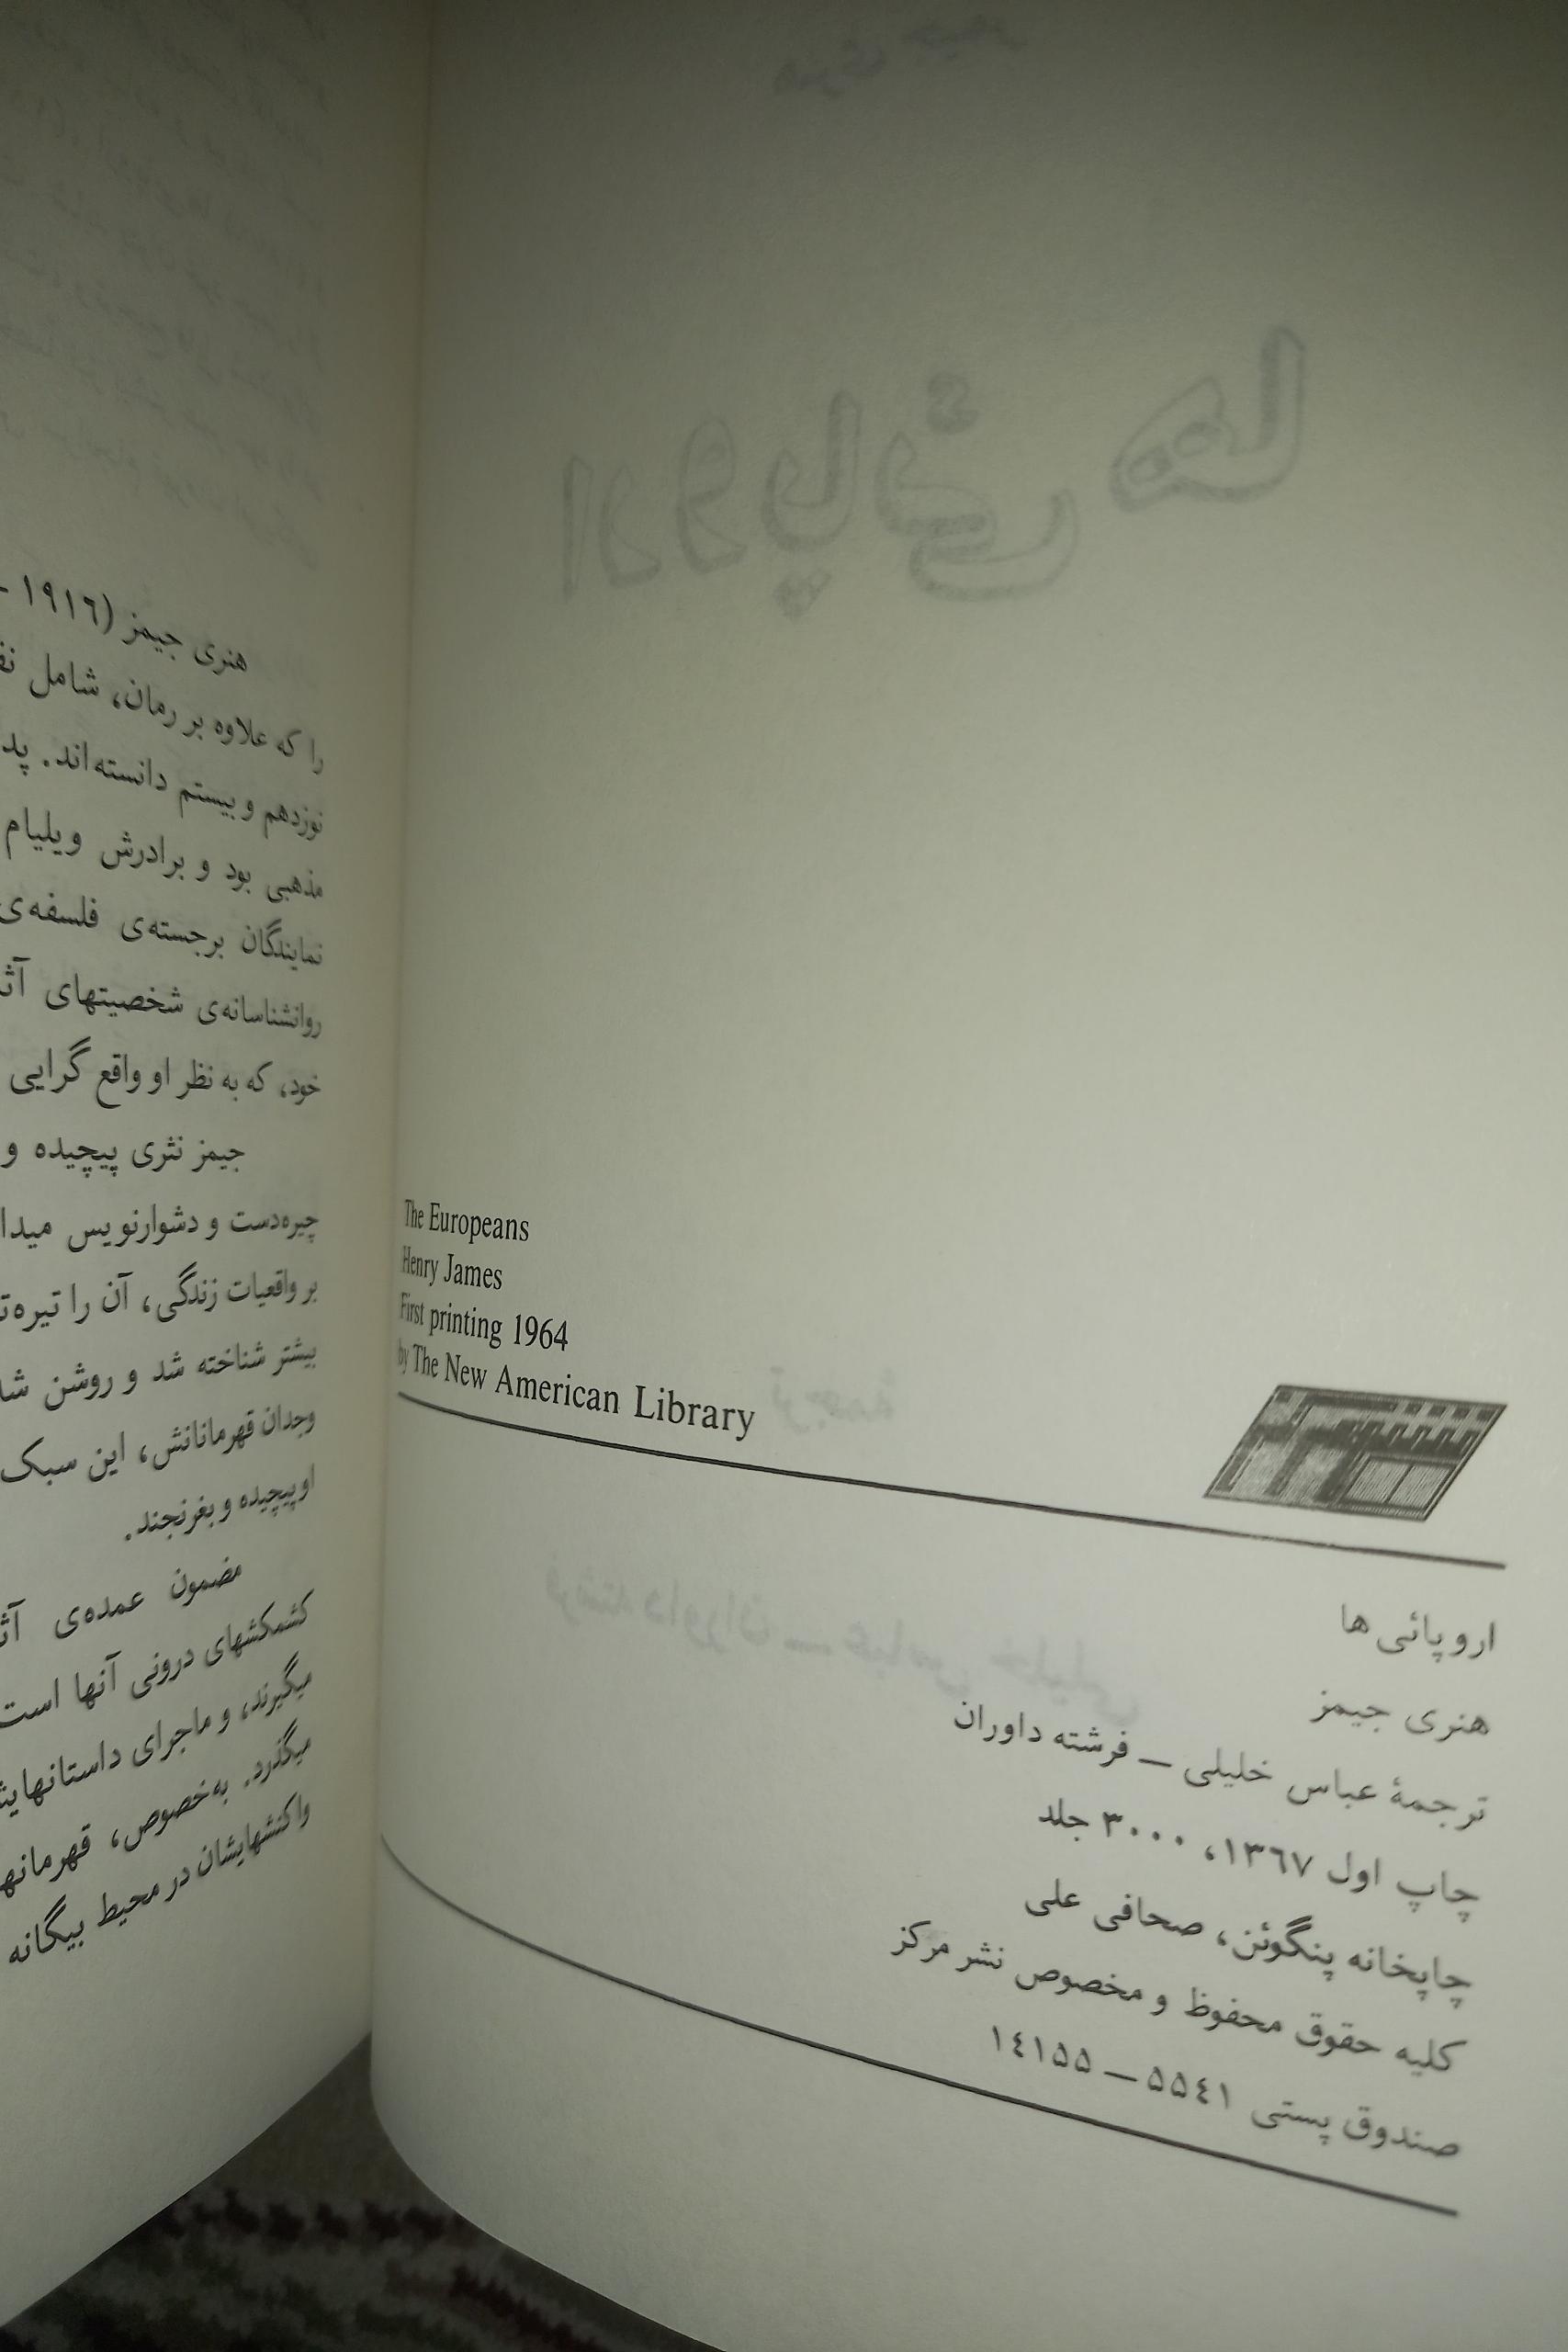 The Europeans
Henry James
First printing 1964
by The New American Library
اروپائی ها
هنری جیمز
ترجمهٔ عباس خلیلی — فرشته داوران
چاپ اول ۱۳٦۷، ۳۰۰۰ جلد
چاپخانه پنگوئن، صحافی علی
کلیه حقوق محفوظ و مخصوص نشر مرکز
صندوق پستی ۵۵٤۱ — ۱٤۱۵۵
هنری جیمز (۱۹۱٦ -
را که علاوه بر رمان، شامل
نوزدهم و بیستم دانسته‌اند.
مذهبی بود و برادرش ویلیام
نمایندگان برجسته‌ی فلسفه‌ی
روانشناسانه‌ی شخصیتهای
خود، که به نظر او واقع گرایی
جیمز نثری پیچیده و
چیره‌دست و دشوارنویس
بر واقعیات زندگی، آن را
بیشتر شناخته شد و روشن
وجدان قهرمانانش، این سبک
او پیچیده و بغرنجند.
مضمون عمده‌ی
کشمکشهای درونی آنها است
میگیرند، و ماجرای
میگذرد. به‌خصوص،
واکنشهایشان در محیط بیگانه